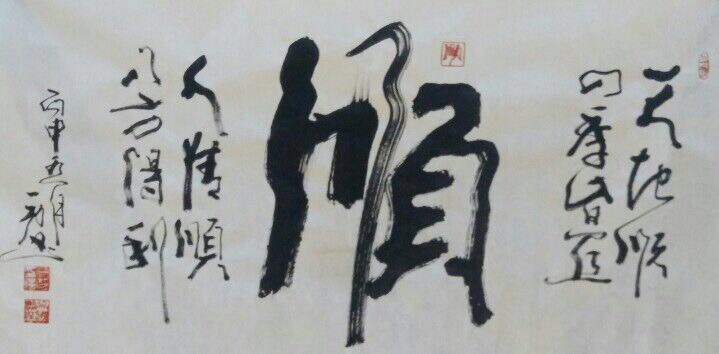 天地順
四季皆宜
順
人情順
八方得利
丙申五月